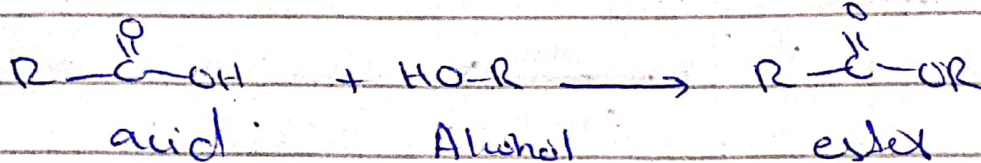 O O
R—C—OH + HO—R ⟶ R—C—OR
acid Alcohol ester